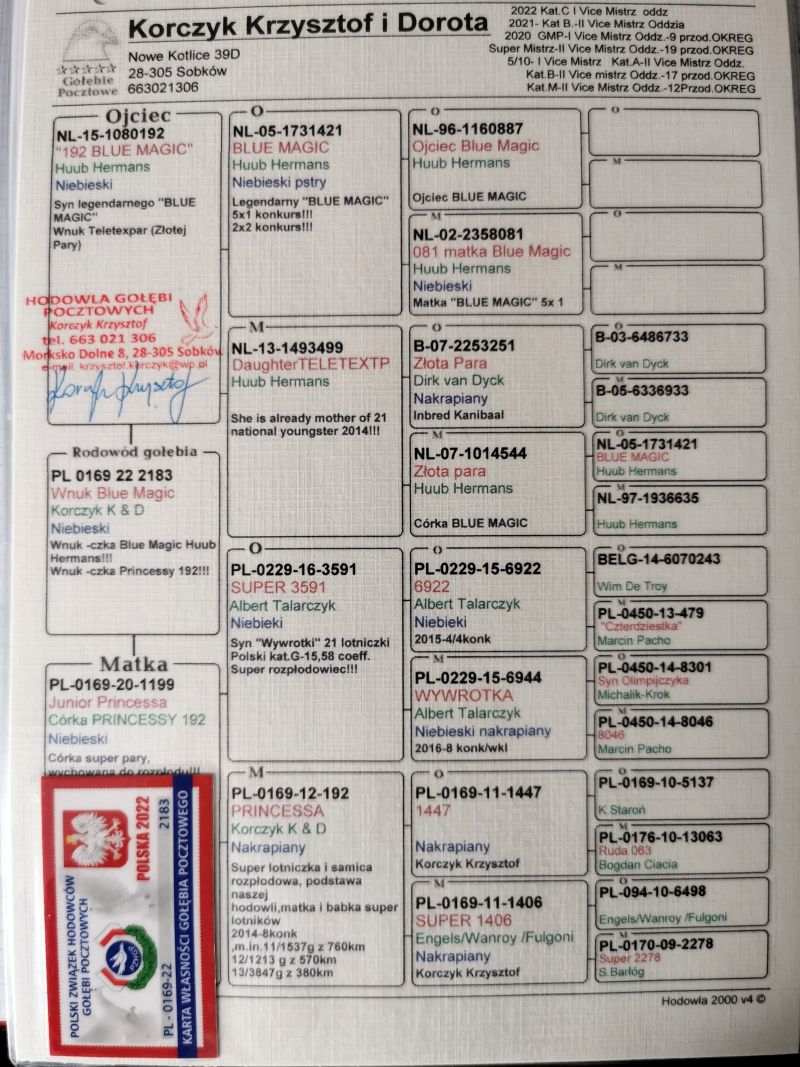 Korczyk Krzysztof i Dorota
Nowe Kotlice 39D
28-305 Sobków
663021306
Gołębie
Pocztowe
2022 Kat.C I Vice Mistrz oddz
2021- Kat B.-II Vice Mistrz Oddzia
2020 GMP-I Vice Mistrz Oddz.-9 przod.OKREG
Super Mistrz-II Vice Mistrz Oddz.-19 przod.OKREG
5/10- I Vice Mistrz Kat.A-II Vice Mistrz Oddz.
Kat.B-II Vice mistrz Oddz.-17 przod.OKREG
Kat.M-II Vice Mistrz Oddz.-12Przod.OKREG
Ojciec
NL-15-1080192
"192 BLUE MAGIC"
Huub Hermans
Niebieski
Syn legendarnego "BLUE
MAGIC"
Wnuk Teletexpar (Złotej
Pary)
HODOWLA GOŁĘBI
POCZTOWYCH
Korczyk Krzysztof
tel. 663 021 306
Mokrsko Dolne 8, 28-305 Sobków
e-mail krzysztof.korczyk@wp.pl
Korczyk Krzysztof
Rodowód gołębia
PL 0169 22 2183
Wnuk Blue Magic
Korczyk K & D
Niebieski
Wnuk -czka Blue Magic Huub
Hermans!!!
Wnuk -czka Princessy 192!!!
Matka
PL-0169-20-1199
Junior Princessa
Córka PRINCESSY 192
Niebieski
Córka super pary,
wychowana do rozpłodu!!!
O
NL-05-1731421
BLUE MAGIC
Huub Hermans
Niebieski pstry
Legendarny "BLUE MAGIC"
5x1 konkurs!!!
2x2 konkurs!!!
M
NL-13-1493499
DaughterTELETEXTP
Huub Hermans
She is already mother of 21
national youngster 2014!!!
O
PL-0229-16-3591
SUPER 3591
Albert Talarczyk
Niebieki
Syn "Wywrotki" 21 lotniczki
Polski kat.G-15,58 coeff.
Super rozpłodowiec!!!
M
PL-0169-12-192
PRINCESSA
Korczyk K & D
Nakrapiany
Super lotniczka i samica
rozpłodowa, podstawa
naszej
hodowli,matka i babka super
lotników
2014-8konk
,m.in.11/1537g z 760km
12/1213 g z 570km
13/3847g z 380km
O
NL-96-1160887
Ojciec Blue Magic
Huub Hermans
Ojciec BLUE MAGIC
M
NL-02-2358081
081 matka Blue Magic
Huub Hermans
Niebieski
Matka "BLUE MAGIC" 5x 1
O
B-07-2253251
Złota Para
Dirk van Dyck
Nakrapiany
Inbred Kanibaal
M
NL-07-1014544
Złota para
Huub Hermans
Córka BLUE MAGIC
O
PL-0229-15-6922
6922
Albert Talarczyk
Niebieki
2015-4/4konk
M
PL-0229-15-6944
WYWROTKA
Albert Talarczyk
Niebieski nakrapiany
2016-8 konk/wkl
O
PL-0169-11-1447
1447
Nakrapiany
Korczyk Krzysztof
M
PL-0169-11-1406
SUPER 1406
Engels/Wanroy /Fulgoni
Nakrapiany
Korczyk Krzysztof
O
M
O
M
O
B-03-6486733
Dirk van Dyck
M
B-05-6336933
Dirk van Dyck
O
NL-05-1731421
BLUE MAGIC
Huub Hermans
M
NL-97-1936635
Huub Hermans
O
BELG-14-6070243
Wim De Troy
M
PL-0450-13-479
"Czterdziestka"
Marcin Pacho
O
PL-0450-14-8301
Syn Olimpijczyka
Michalik-Krok
M
PL-0450-14-8046
8046
Marcin Pacho
O
PL-0169-10-5137
K.Staroń
M
PL-0176-10-13063
Ruda 063
Bogdan Ciacia
O
PL-094-10-6498
Engels/Wanroy/Fulgoni
M
PL-0170-09-2278
Super 2278
S.Barłóg
Hodowla 2000 v4 ©
POLSKI ZWIĄZEK HODOWCÓW
GOŁĘBI POCZTOWYCH
POLSKA 2022
PZHGP
PL - 0169-22 2183
KARTA WŁASNOŚCI GOŁĘBIA POCZTOWEGO